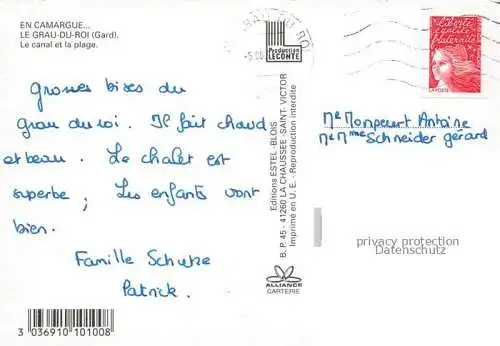 EN CAMARGUE...
LE GRAU-DU-ROI (Gard).
Le canal et la plage.
Grosses bises du
Grau du roi. Il fait chaud
et beau. Le chalet est
superbe ; Les enfants vont
bien.
Famille Schulze
Patrick.
3 036910 101008
Production
LECONTE
GRAU DU ROI
Editions ESTEL-BLOIS
B. P. 45 - 41260 LA CHAUSSEE-SAINT-VICTOR
Imprimé en U. E. - Reproduction interdite
ALLIANCE
CARTERIE
Liberté
égalité
fraternité
LA POSTE
Mr Monpeurt Antoine
Mr Mme Schneider gérard
privacy protection
Datenschutz